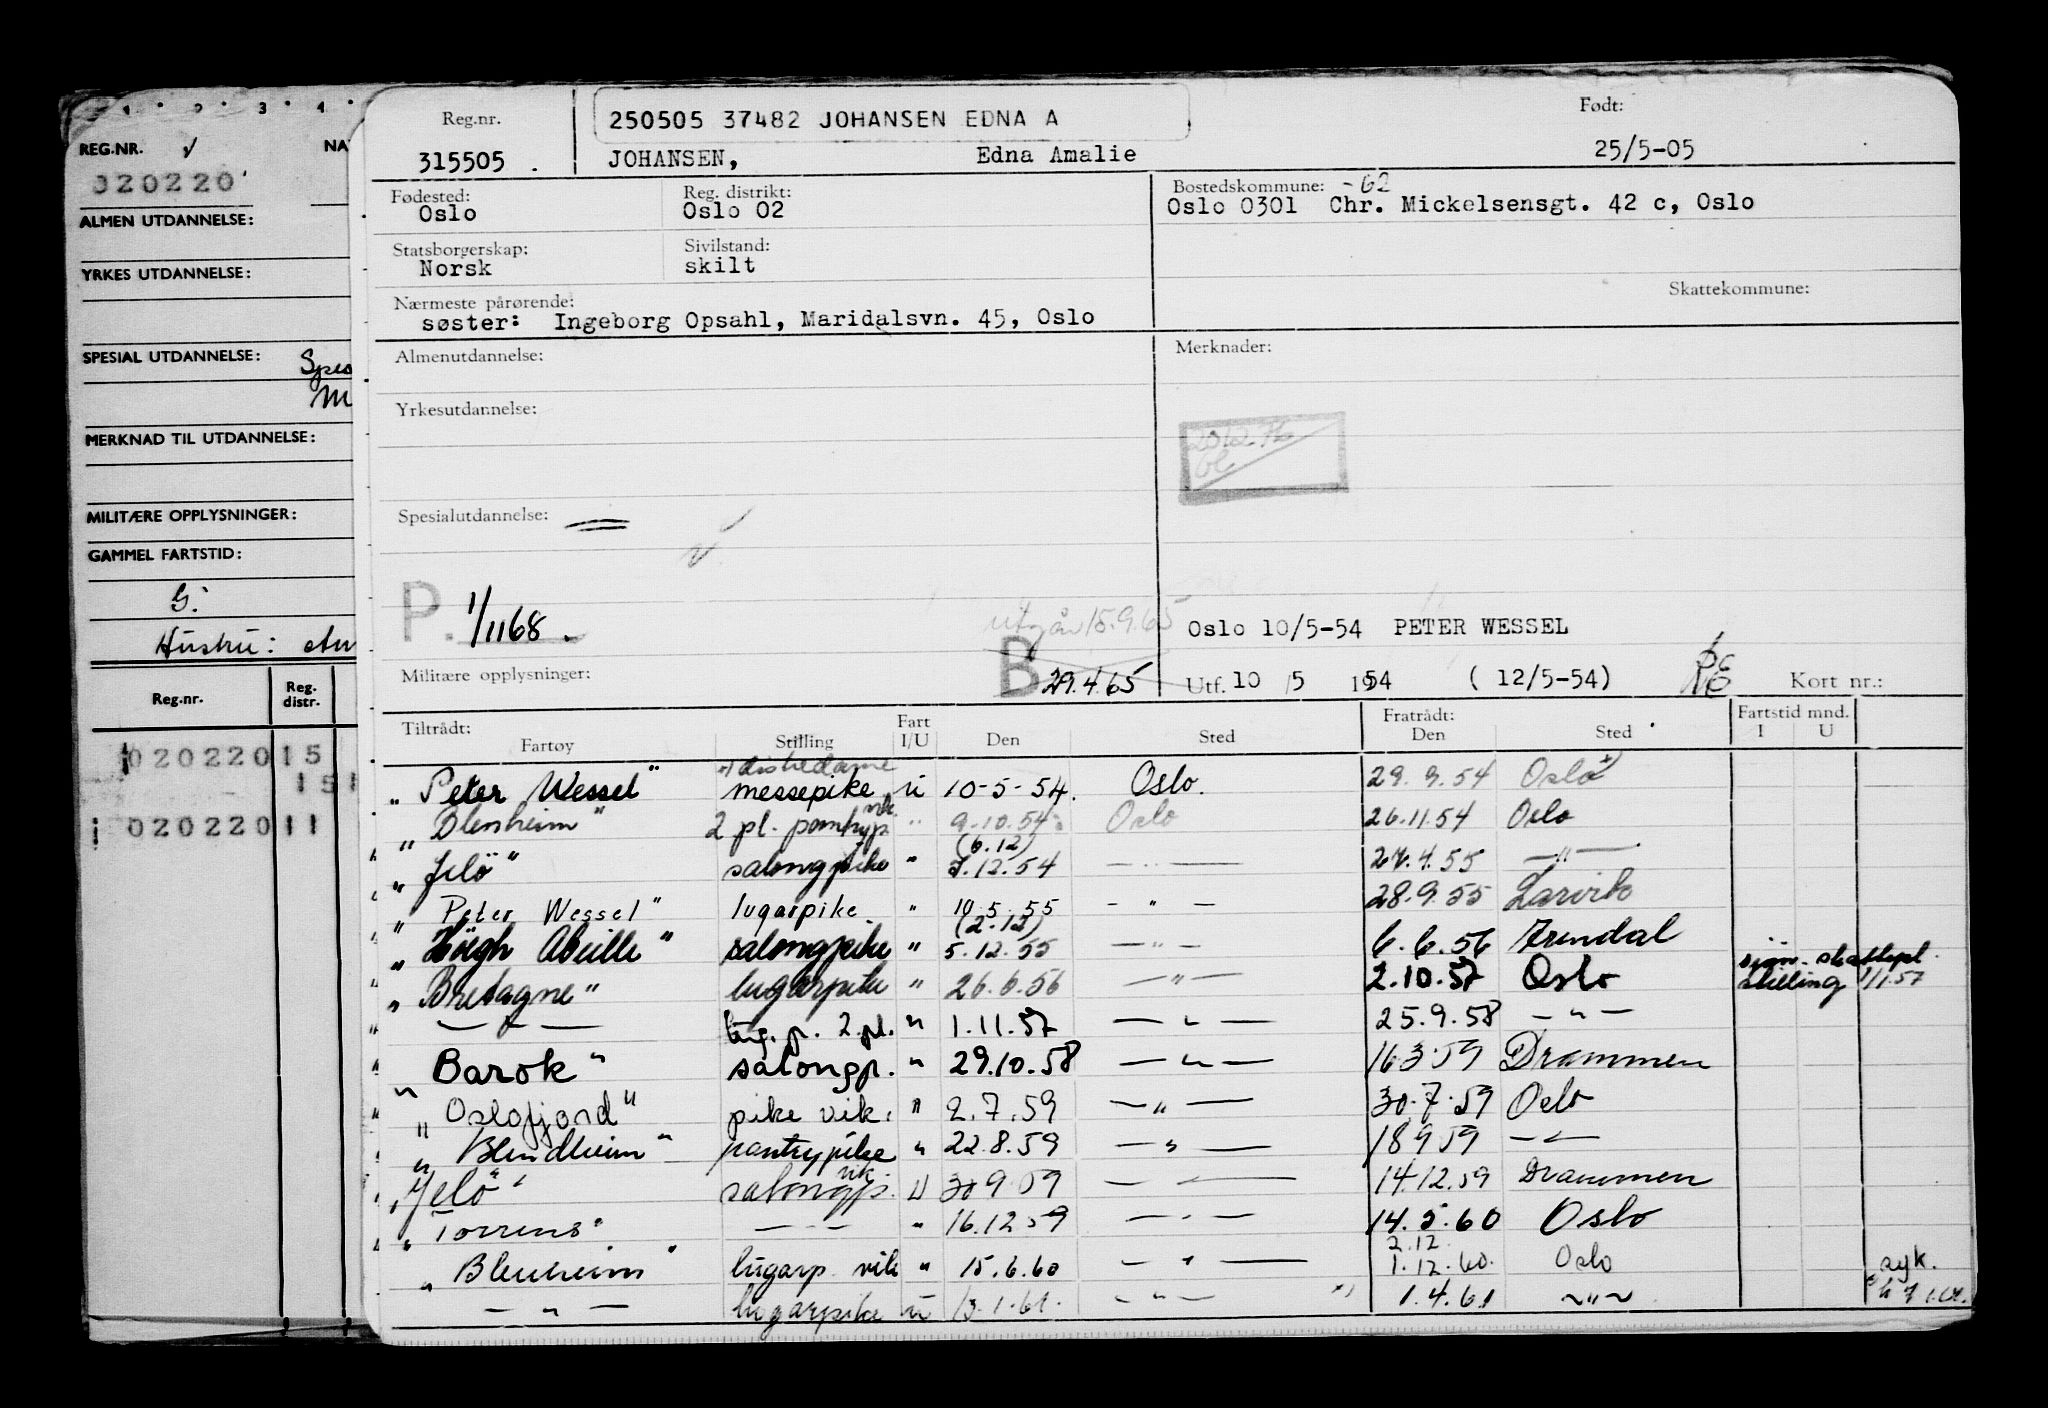 1 . 2 . 3 . 4 .
REG.NR.
NA
320220
ALMEN UTDANNELSE:
YRKES UTDANNELSE:
SPESIAL UTDANNELSE:
MERKNAD TIL UTDANNELSE:
MILITÆRE OPPLYSNINGER:
GAMMEL FARTSTID:
G.
Hustru:
Reg.nr. Reg. distr.
020220 15
15
020220 11
Reg.nr. 250505 37482 JOHANSEN EDNA A Født:
315505 . JOHANSEN, Edna Amalie 25/5-05
Fødested: Reg. distrikt: Bostedskommune: -62
Oslo Oslo 02 Oslo 0301 Chr. Mickelsensgt. 42 c, Oslo
Statsborgerskap: Sivilstand:
Norsk skilt
Nærmeste pårørende: Skattekommune:
søster: Ingeborg Opsahl, Maridalsvn. 45, Oslo
Almenutdannelse: Merknader:
Yrkesutdannelse:
Spesialutdannelse:
P. 1/1168.
utgår 15.9.65
Oslo 10/5-54 PETER WESSEL
Militære opplysninger: B 29.4.65 Utf. 10/5 1954 ( 12/5-54) Kort nr.:
Tiltrådt: Fart Fratrådt: Fartstid mnd.
Fartøy Stilling I/U Den Sted Den Sted I U
+) dishedame
"Peter Wessel" messepike u 10-5-54. Oslo. 29.9.54 Oslo +)
"Blenheim" 2 pl. pantryp. vik. " 9.10.54 Oslo 26.11.54 Oslo
(6.12)
"Jelö" salongpike " 7.12.54 — " — 27.4.55 — " —
"Peter Wessel" lugarpike " 10.5.55 — " — 28.9.55 Larvik
(2.12)
"Höegh Abeille" salongpike " 5.12.55 — " — 6.6.56 Arendal
"Bretagne" lugarpike " 26.6.56 — " — 2.10.57 Oslo sjøm. skattepl. stilling 1/1.57
" — " — lug. p. 2.pl. " 1.11.57 — " — 25.9.58 — " —
"Barok" salongp. " 29.10.58 — " — 16.3.59 Drammen
"Oslofjord" pike vik. " 2.7.59 — " — 30.7.59 Oslo
"Blendheim" pantrypike " 22.8.59 — " — 18.9.59 — " —
"Jelö" salongp. vik. U 30.9.59 — " — 14.12.59 Drammen
"Torrens" — " — " 16.12.59 — " — 14.5.60 Oslo
2.12
"Blenheim" lugarp. vik " 15.6.60 — " — 1.12.60. Oslo syk.
— " — lugarpike u 13.1.61. — " — 1.4.61 — " —